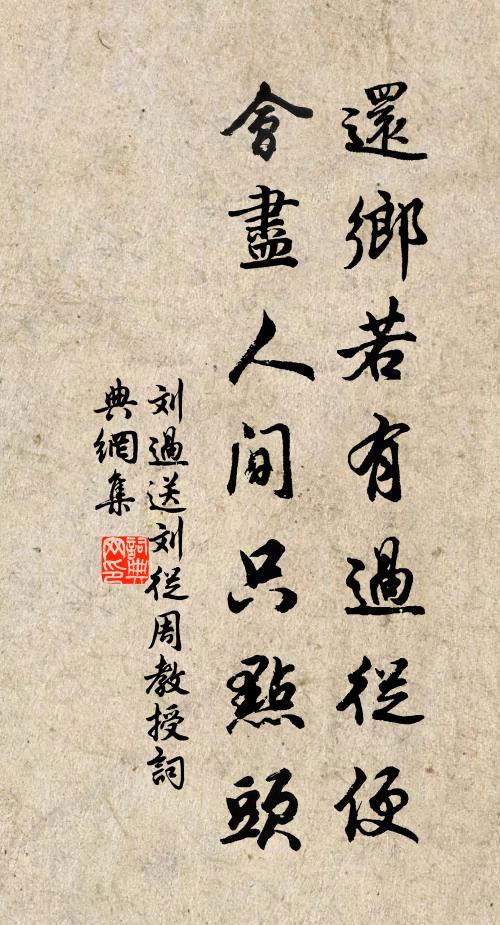 還鄉若有過從便
會盡人間只點頭
刘過送刘從周教授詞
典網集
詞典网印